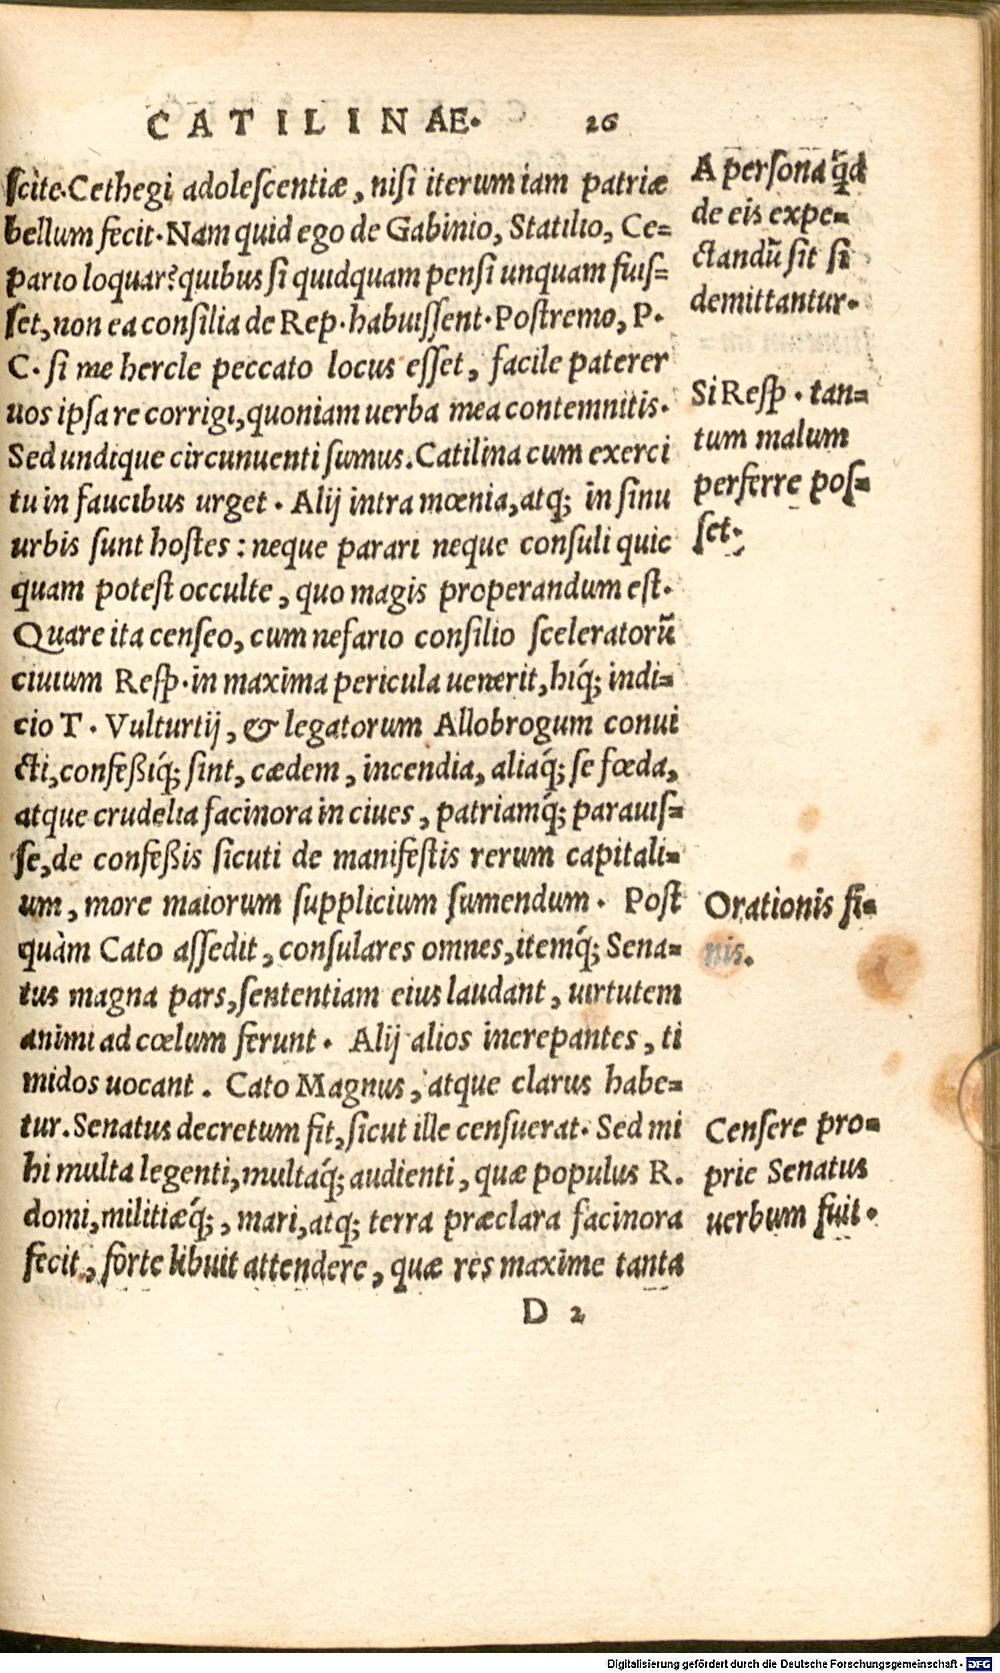 CATILINAE. 26
scite. Cethegi adolescentiæ, nisi iterum iam patriæ
bellum fecit. Nam quid ego de Gabinio, Statilio, Ce=
pario loquar? quibus si quidquam pensi unquam fuis=
set, non ea consilia de Rep. habuissent. Postremo, P.
C. si me hercle peccato locus esset, facile paterer
uos ipsa re corrigi, quoniam uerba mea contemnitis.
Sed undique circunuenti sumus. Catilina cum exerci
tu in faucibus urget. Alij intra mœnia, atq; in sinu
urbis sunt hostes: neque parari neque consuli quic
quam potest occulte, quo magis properandum est.
Quare ita censeo, cum nefario consilio sceleratorũ
ciuium Resp. in maxima pericula uenerit, hiq́; indi=
cio T. Vulturtij, & legatorum Allobrogum conui
cti, confeßiq́; sint, cædem, incendia, aliaq́; se fœda,
atque crudelia facinora in ciues, patriamq́; parauis=
se, de confeßis sicuti de manifestis rerum capitali=
um, more maiorum supplicium sumendum. Post
quàm Cato assedit, consulares omnes, itemq́; Sena=
tus magna pars, sententiam eius laudant, uirtutem
animi ad cœlum ferunt. Alij alios increpantes, ti
midos uocant. Cato Magnus, atque clarus habe=
tur. Senatus decretum fit, sicut ille censuerat. Sed mi
hi multa legenti, multaq́; audienti, quæ populus R.
domi, militiæq́;, mari, atq; terra præclara facinora
fecit, forte libuit attendere, quæ res maxime tanta
D 2
A persona q̃d
de eis expe=
ctandũ sit si
demittantur.
Si Resp. tan=
tum malum
perferre pos=
set.
Orationis fi=
nis.
Censere pro=
prie Senatus
uerbum fuit.
Digitalisierung gefördert durch die Deutsche Forschungsgemeinschaft - DFG